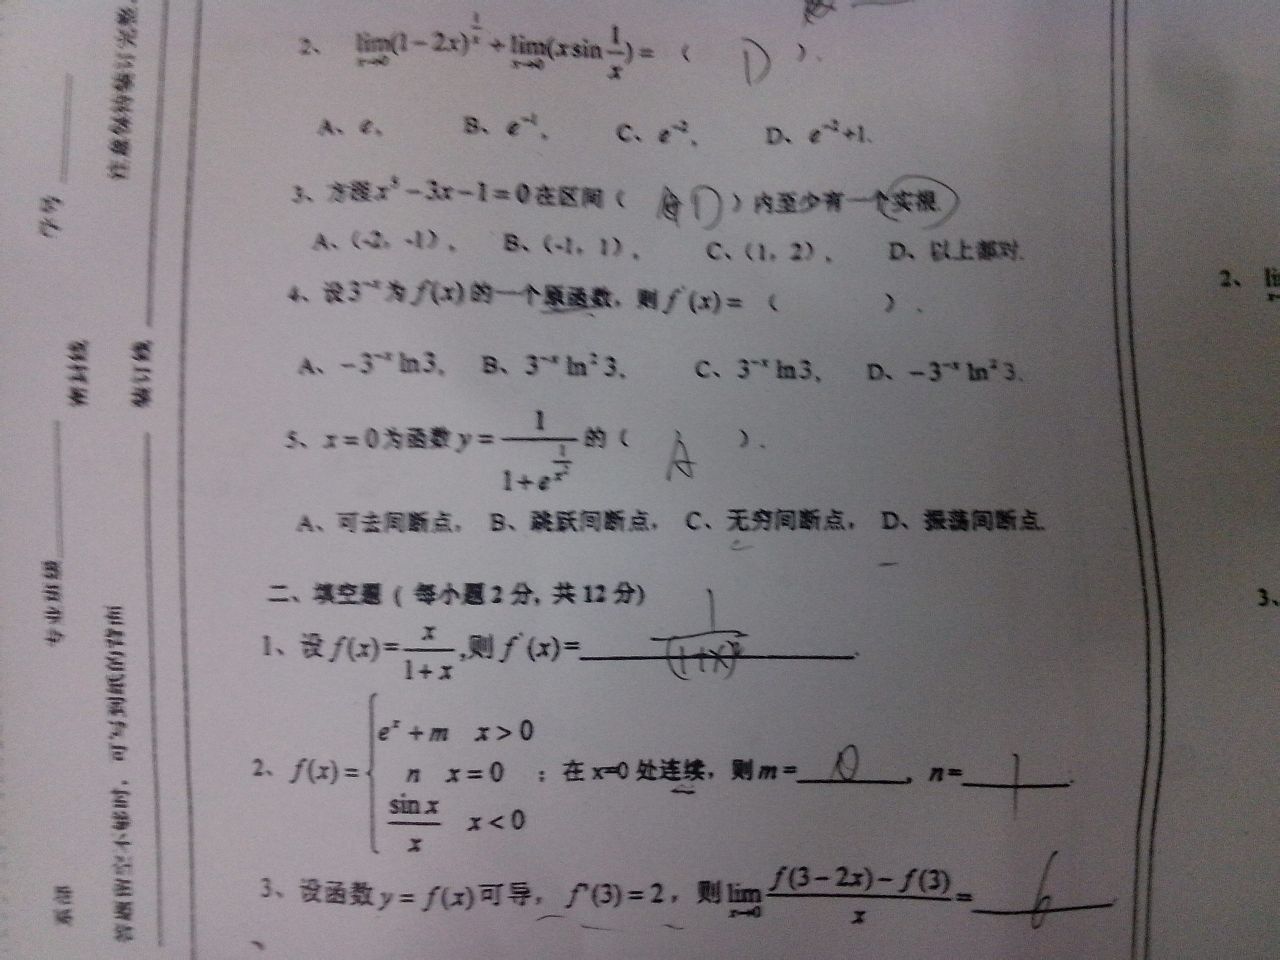 2、 lim(1-2x)^{1/x} + lim(x sin 1/x) = ( D ).
x→0 x→0
A、e, B、e⁻¹, C、e⁻², D、e⁻²+1.
3、方程x³-3x-1=0在区间( D )内至少有一个实根
A、(-2,-1), B、(-1,1), C、(1,2), D、以上都对.
4、设3⁻ˣ为f(x)的一个原函数,则f'(x)=( ).
A、-3⁻ˣ ln3, B、3⁻ˣ ln²3, C、3⁻ˣ ln3, D、-3⁻ˣ ln²3.
5、x=0为函数y= 1/(1+e^{1/x²}) 的( A ).
A、可去间断点, B、跳跃间断点, C、无穷间断点, D、振荡间断点.
二、填空题(每小题2分,共12分)
1、设f(x)= x/(1+x) ,则f'(x)= 1/(1+x)² .
2、f(x)= { eˣ+m x>0
n x=0 ;在x=0处连续,则m= 0 , n= 1 .
sin x/x x<0
3、设函数y=f(x)可导, f'(3)=2,则lim (f(3-2x)-f(3))/x = 6
x→0
学号
密封线
装订线
专业班级
系部
2、 li
3、